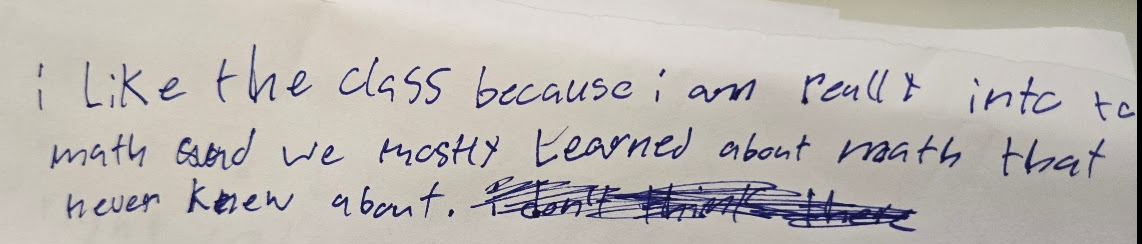 i like the class because i am really into to
math and we mostly learned about math that
never knew about. i don't think there